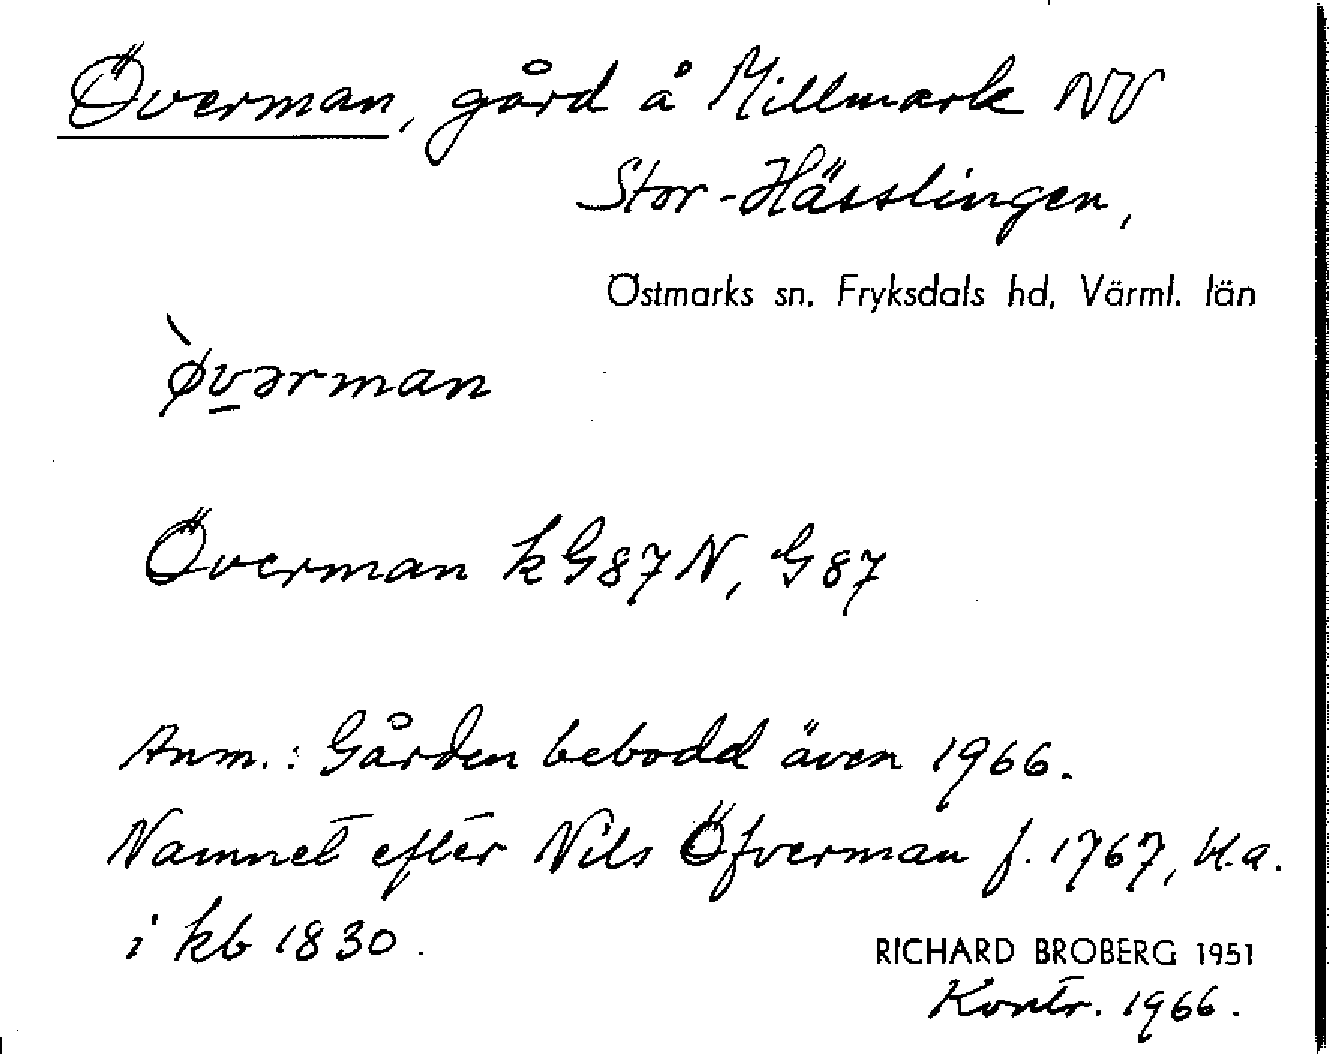 Överman, gård å Millmark NV
Stor-Hässlingen,
Östmarks sn. Fryksdals hd, Värml. län
̀øv̲ərman
Överman kG87N, G87
Anm.: Gården bebodd även 1966.
Namnet efter Nils Öfverman f. 1767, u.a.
i kb 1830.
RICHARD BROBERG 1951
Kontr. 1966.